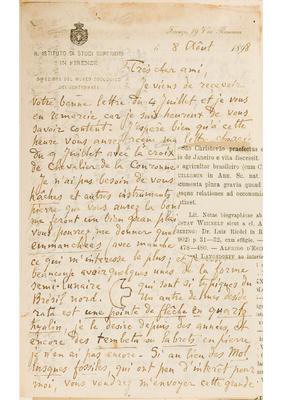 Firenze, 19 Via Romana
R. ISTITUTO DI STUDI SUPERIORI
IN FIRENZE
DIREZIONE DEL MUSEO ZOOLOGICO
DEI VERTEBRATI
8 Août 1898
Très cher ami,
je viens de recevoir
votre bonne lettre du 4 Juillet et je vous
en remercie car je suis heureux de vous
savoir content. J'espère bien qu'à cette
heure vous aurez reçu ma lettre
du 9 Juillet avec la croix
de Chevalier de la Couronne
je n'ai pas besoin de vous
haches et autres instruments
pierre que vous aurez la bonté
me feront un bien grand plaisir
vous pourrez me donner quelques
emmanchées avec manche
ce qui m'intéresse le plus; et
beaucoup avoir quelques unes de la forme
semi-lunaire qui sont si typiques du
Brésil nord. Un autre de mes désirs
rata est une pointe de flèche en quartz
hyalin; je le désire depuis des années et
encore des tembeta ou labrets en pierre
je n'en ai pas encore. Si au lieu des Mol-
lusques fossiles, qui ont peu d'intérêt pour
moi, vous vendrez m'envoyer cette grande
von Christovão praefectus
io de Janeiro e vita discessit
agricultor brasiliensis
in Ann. Sc. nat.
cumenta plura gravia quoad
sque relationes ad oeconomiam
Litt. Notae biographicae
Dr. Luis Riedel in
p. 31—32, cum effigie.
478—480.